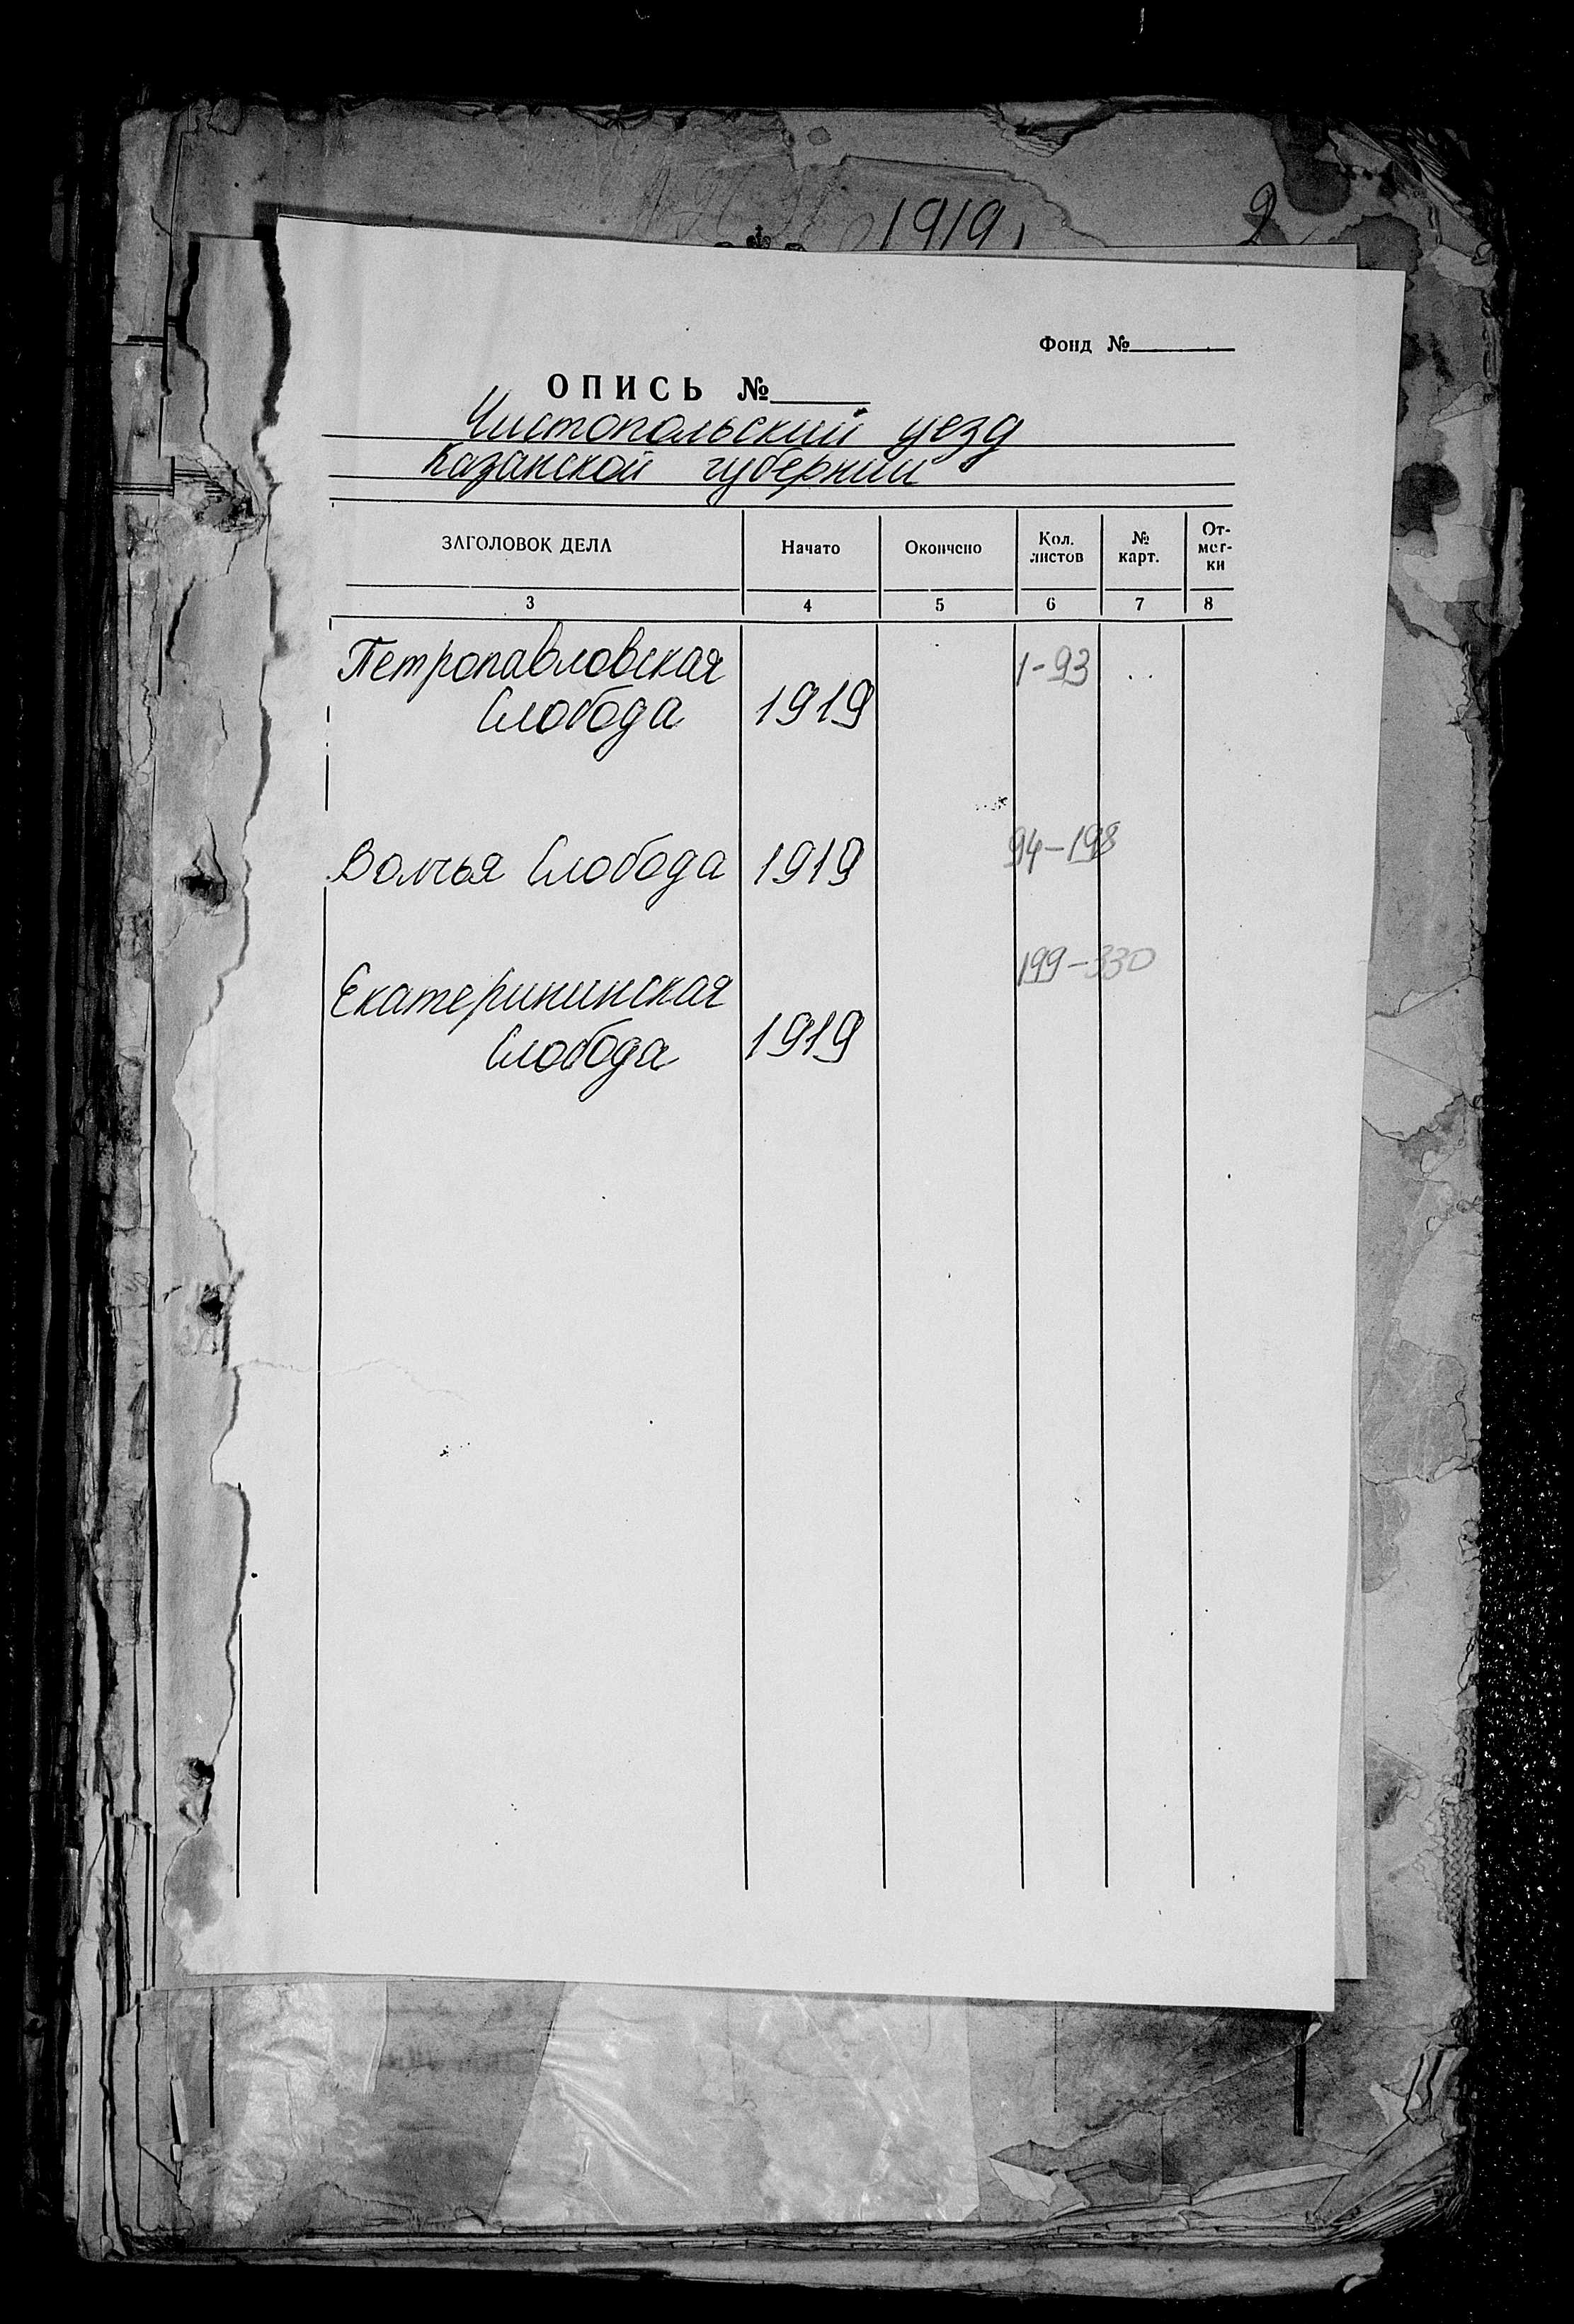 1919
2
Фонд №
ОПИСЬ №
Чистопольский уезд
Казанской губернии
ЗАГОЛОВОК ДЕЛА Начато Окончено Кол. листов № карт. От-мет-ки
3 4 5 6 7 8
Петропавловская 1-93
Слобода 1919
Волчья Слобода 1919 94-198
Екатерининская 199-330
Слобода 1919